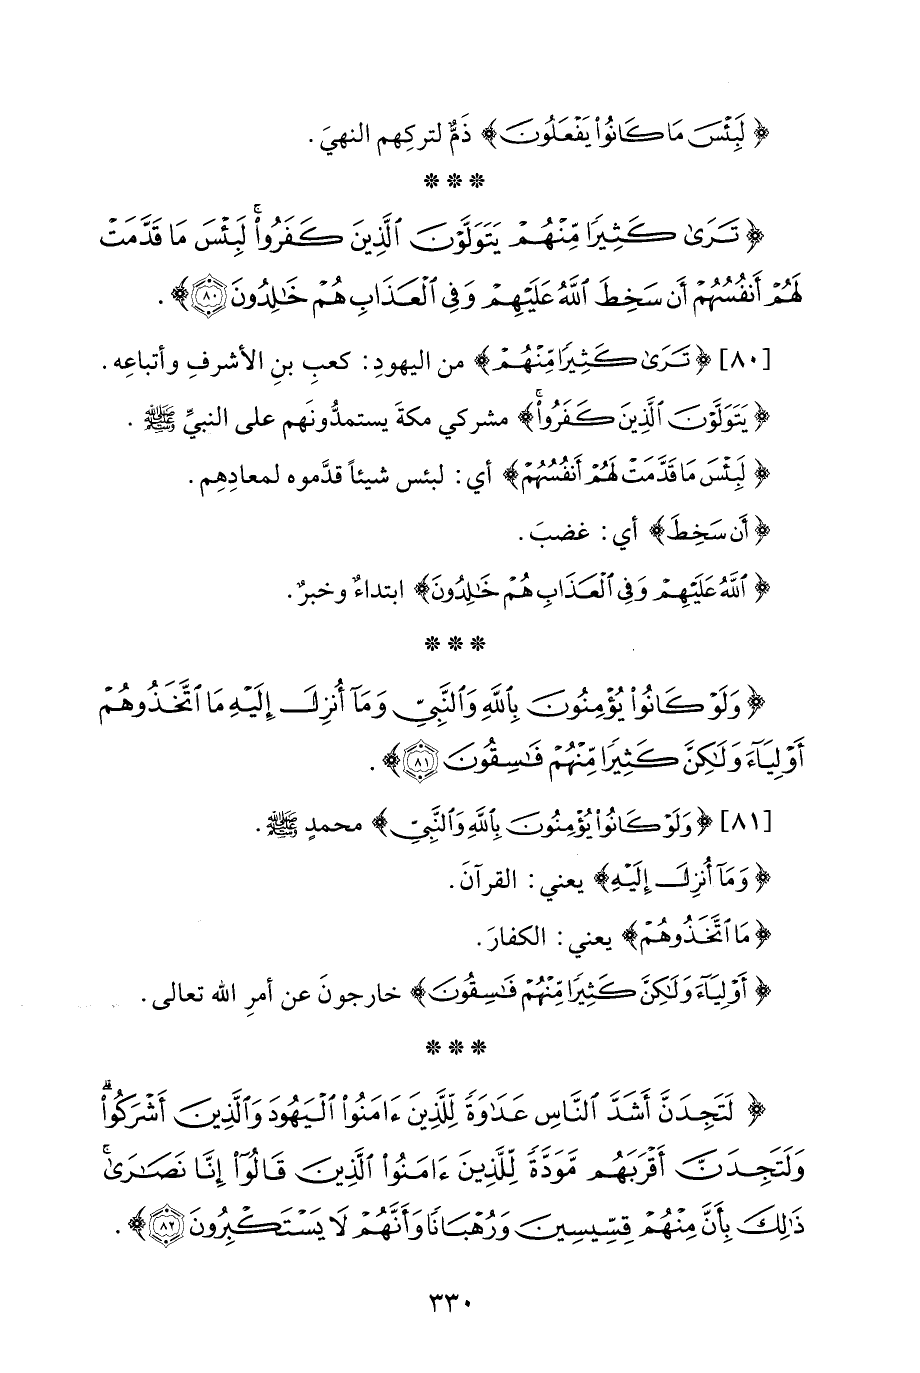 ﴿ لَبِئْسَ مَا كَانُوا۟ يَفْعَلُونَ ﴾ ذَمٌّ لتركِهم النهيَ .
* * *
﴿ تَرَىٰ كَثِيرًا مِّنْهُمْ يَتَوَلَّوْنَ ٱلَّذِينَ كَفَرُوا۟ ۚ لَبِئْسَ مَا قَدَّمَتْ
لَهُمْ أَنفُسُهُمْ أَن سَخِطَ ٱللَّهُ عَلَيْهِمْ وَفِى ٱلْعَذَابِ هُمْ خَٰلِدُونَ ٨٠ ﴾ .
[٨٠] ﴿ تَرَىٰ كَثِيرًا مِّنْهُمْ ﴾ من اليهودِ : كعبِ بنِ الأشرفِ وأتباعِه .
﴿ يَتَوَلَّوْنَ ٱلَّذِينَ كَفَرُوا۟ ۚ ﴾ مشركي مكةَ يستمدُّونَهم على النبيِّ ﷺ .
﴿ لَبِئْسَ مَا قَدَّمَتْ لَهُمْ أَنفُسُهُمْ ﴾ أي : لبئس شيئاً قدَّموه لمعادِهِم .
﴿ أَن سَخِطَ ﴾ أي : غضبَ .
﴿ ٱللَّهُ عَلَيْهِمْ وَفِى ٱلْعَذَابِ هُمْ خَٰلِدُونَ ﴾ ابتداءٌ وخبرٌ .
* * *
﴿ وَلَوْ كَانُوا۟ يُؤْمِنُونَ بِٱللَّهِ وَٱلنَّبِىِّ وَمَآ أُنزِلَ إِلَيْهِ مَا ٱتَّخَذُوهُمْ
أَوْلِيَآءَ وَلَٰكِنَّ كَثِيرًا مِّنْهُمْ فَٰسِقُونَ ٨١ ﴾ .
[٨١] ﴿ وَلَوْ كَانُوا۟ يُؤْمِنُونَ بِٱللَّهِ وَٱلنَّبِىِّ ﴾ محمدٍ ﷺ .
﴿ وَمَآ أُنزِلَ إِلَيْهِ ﴾ يعني : القرآنَ .
﴿ مَا ٱتَّخَذُوهُمْ ﴾ يعني : الكفارَ .
﴿ أَوْلِيَآءَ وَلَٰكِنَّ كَثِيرًا مِّنْهُمْ فَٰسِقُونَ ﴾ خارجونَ عن أمرِ الله تعالى .
* * *
﴿ لَتَجِدَنَّ أَشَدَّ ٱلنَّاسِ عَدَٰوَةً لِّلَّذِينَ ءَامَنُوا۟ ٱلْيَهُودَ وَٱلَّذِينَ أَشْرَكُوا۟ ۖ
وَلَتَجِدَنَّ أَقْرَبَهُم مَّوَدَّةً لِّلَّذِينَ ءَامَنُوا۟ ٱلَّذِينَ قَالُوٓا۟ إِنَّا نَصَٰرَىٰ ۚ
ذَٰلِكَ بِأَنَّ مِنْهُمْ قِسِّيسِينَ وَرُهْبَانًا وَأَنَّهُمْ لَا يَسْتَكْبِرُونَ ٨٢ ﴾ .
٣٣٠